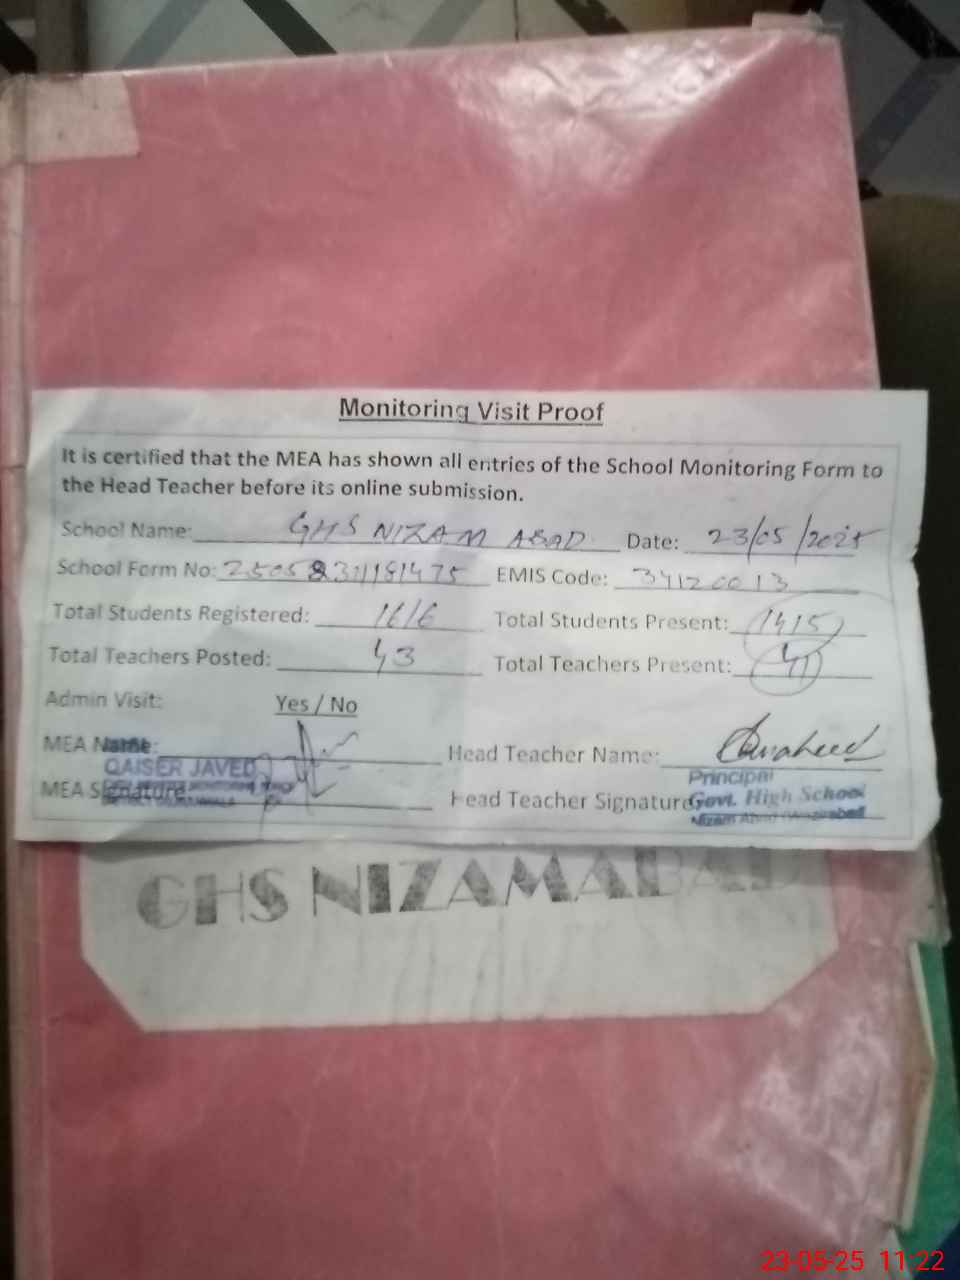 Monitoring Visit Proof
It is certified that the MEA has shown all entries of the School Monitoring Form to
the Head Teacher before its online submission.
School Name: GHS NIZAM ABAD Date: 23/05/2025
School Form No: EMIS Code: 34120013
Total Students Registered: 1616 Total Students Present: 1415
Total Teachers Posted: 43 Total Teachers Present: 41
Admin Visit: Yes / No
MEA Name: Head Teacher Name:
QAISER JAVED
Principal
MEA Signature Head Teacher Signature
Govt. High School
Nizam Abad
GHS NIZAMABAD
23-05-25 11:22